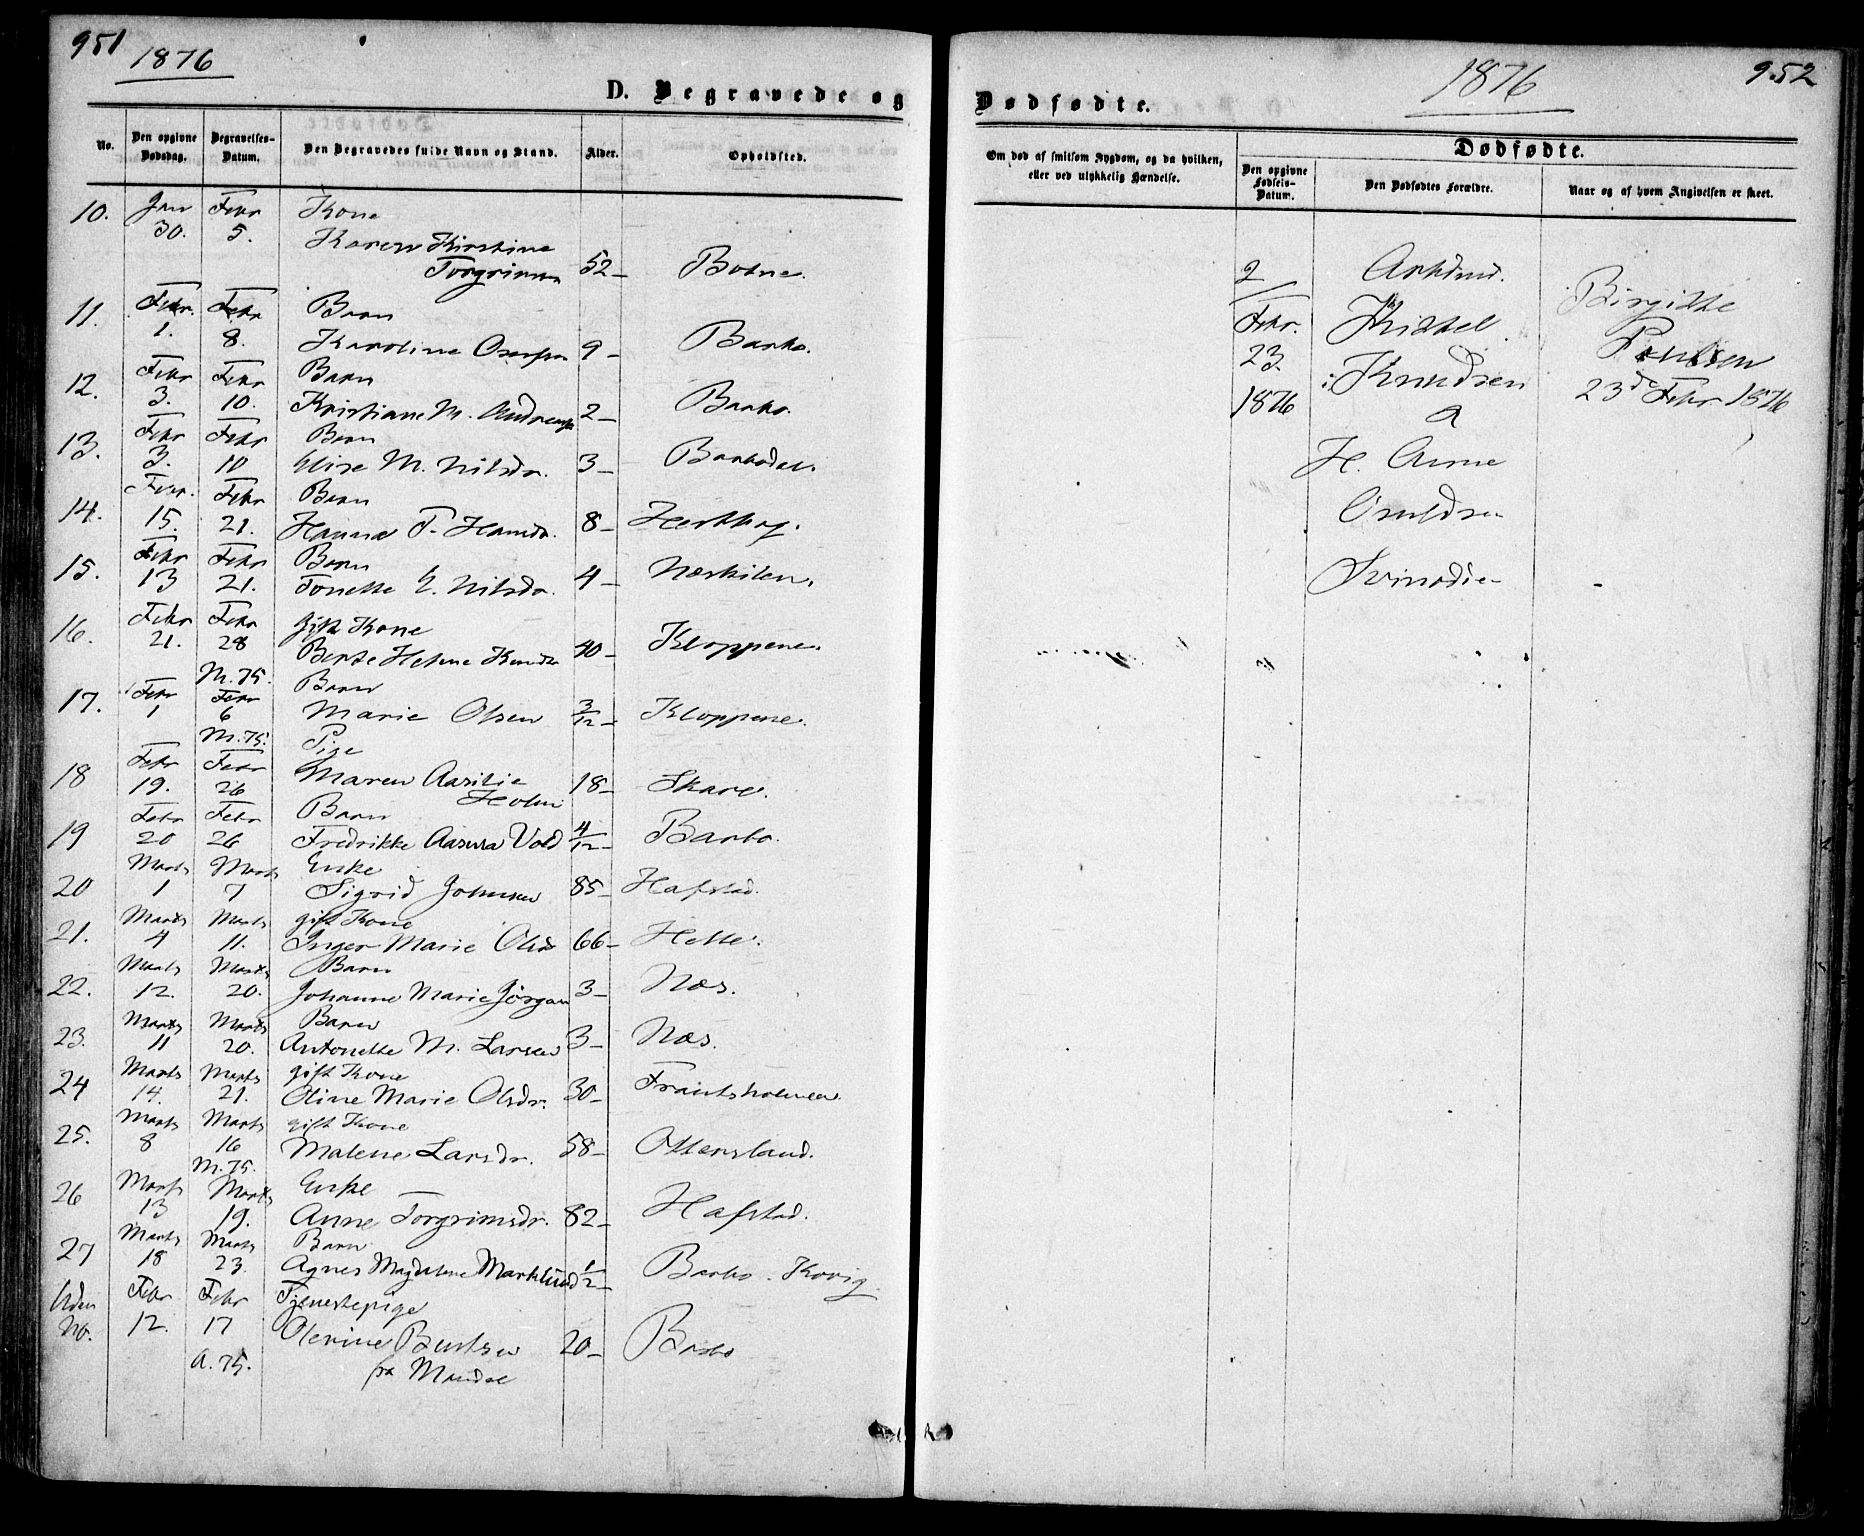 951
1876
D. Begravede og
No.
Den opgivne Dødsdag.
Begravelses-Datum.
Den Begravedes fulde Navn og Stand.
Alder.
Opholdsted.
10. Jan 30. Febr 5. Kone
Karen Kirstine
52 –
11. Febr. 1. Febr 8. Barn
Karoline 9 – Barbo.
12. Febr 3. Febr 10. Barn
Kristiane M. 2 – Barbo.
13. Febr 3. Febr 10 Barn
Elise M. Nilsdr. 3 – Barbodal.
14. Febr. 15. Febr 21. Barn
Hanna T. 8 –
15. Febr 13 Febr 21. Barn
Tonette E. Nilsdr. 4 – Næskilen.
16. Febr 21. Febr 28 gift Kone
Berte Helene 40 – Kloppene.
M. 75.
17. Febr 1 Febr 6 Barn
Marie Olsen 3/12 – Kloppene.
M. 75.
18 Febr 19. Febr 26 Pige
Maren Aasilie
Holm 18 – Skare.
19 Febr 20 Febr 26 Barn
Fredrikke Vold 4/12 – Barbo.
20 Marts 1 Marts 7 Enke
Sigrid Johnsen 85 – Hafstad.
21. Marts 4 Marts 11. gift Kone
Inger Marie Olsd 66 – Helle.
22. Marts 12. Marts 20. Barn
Johanne Marie 3 – Næs.
23. Marts 11 Marts 20. Barn
Antonette M. Larsen 3 – Næs.
24 Marts 14. Marts 21. gift Kone
Oline Marie Olsdr. 30 – Frantsholmen.
25. Marts 8 Marts 16 gift Kone
Malene Larsdr. 58 – Ottersland.
M. 75.
26 Marts 13 Marts 19. Enke
Anne Torgrimsdr. 82 – Hafstad.
27 Marts 18 Marts 23. Barn
Agnes Magdalene Marklund 1/2 – Barbo.
Uden No. Febr 12. Febr 17 Tjenestepige
Olerine 20 – Barbo
A. 75. fra Mandal
1876
952
Dødfødte.
Om død af smitsom Sygdom, og da hvilken,
eller ved ulykkelig Hændelse.
Dødfødte.
Den opgivne Fødsels-Datum.
Den Dødfødtes Forældre.
Naar og af hvem Angivelsen er skeet.
2/
Febr.
23.
1876
Arbdmd.
Kittel
Knudsen
&
H. Anne
Osuldsen
Birgitte
23de Febr 1876